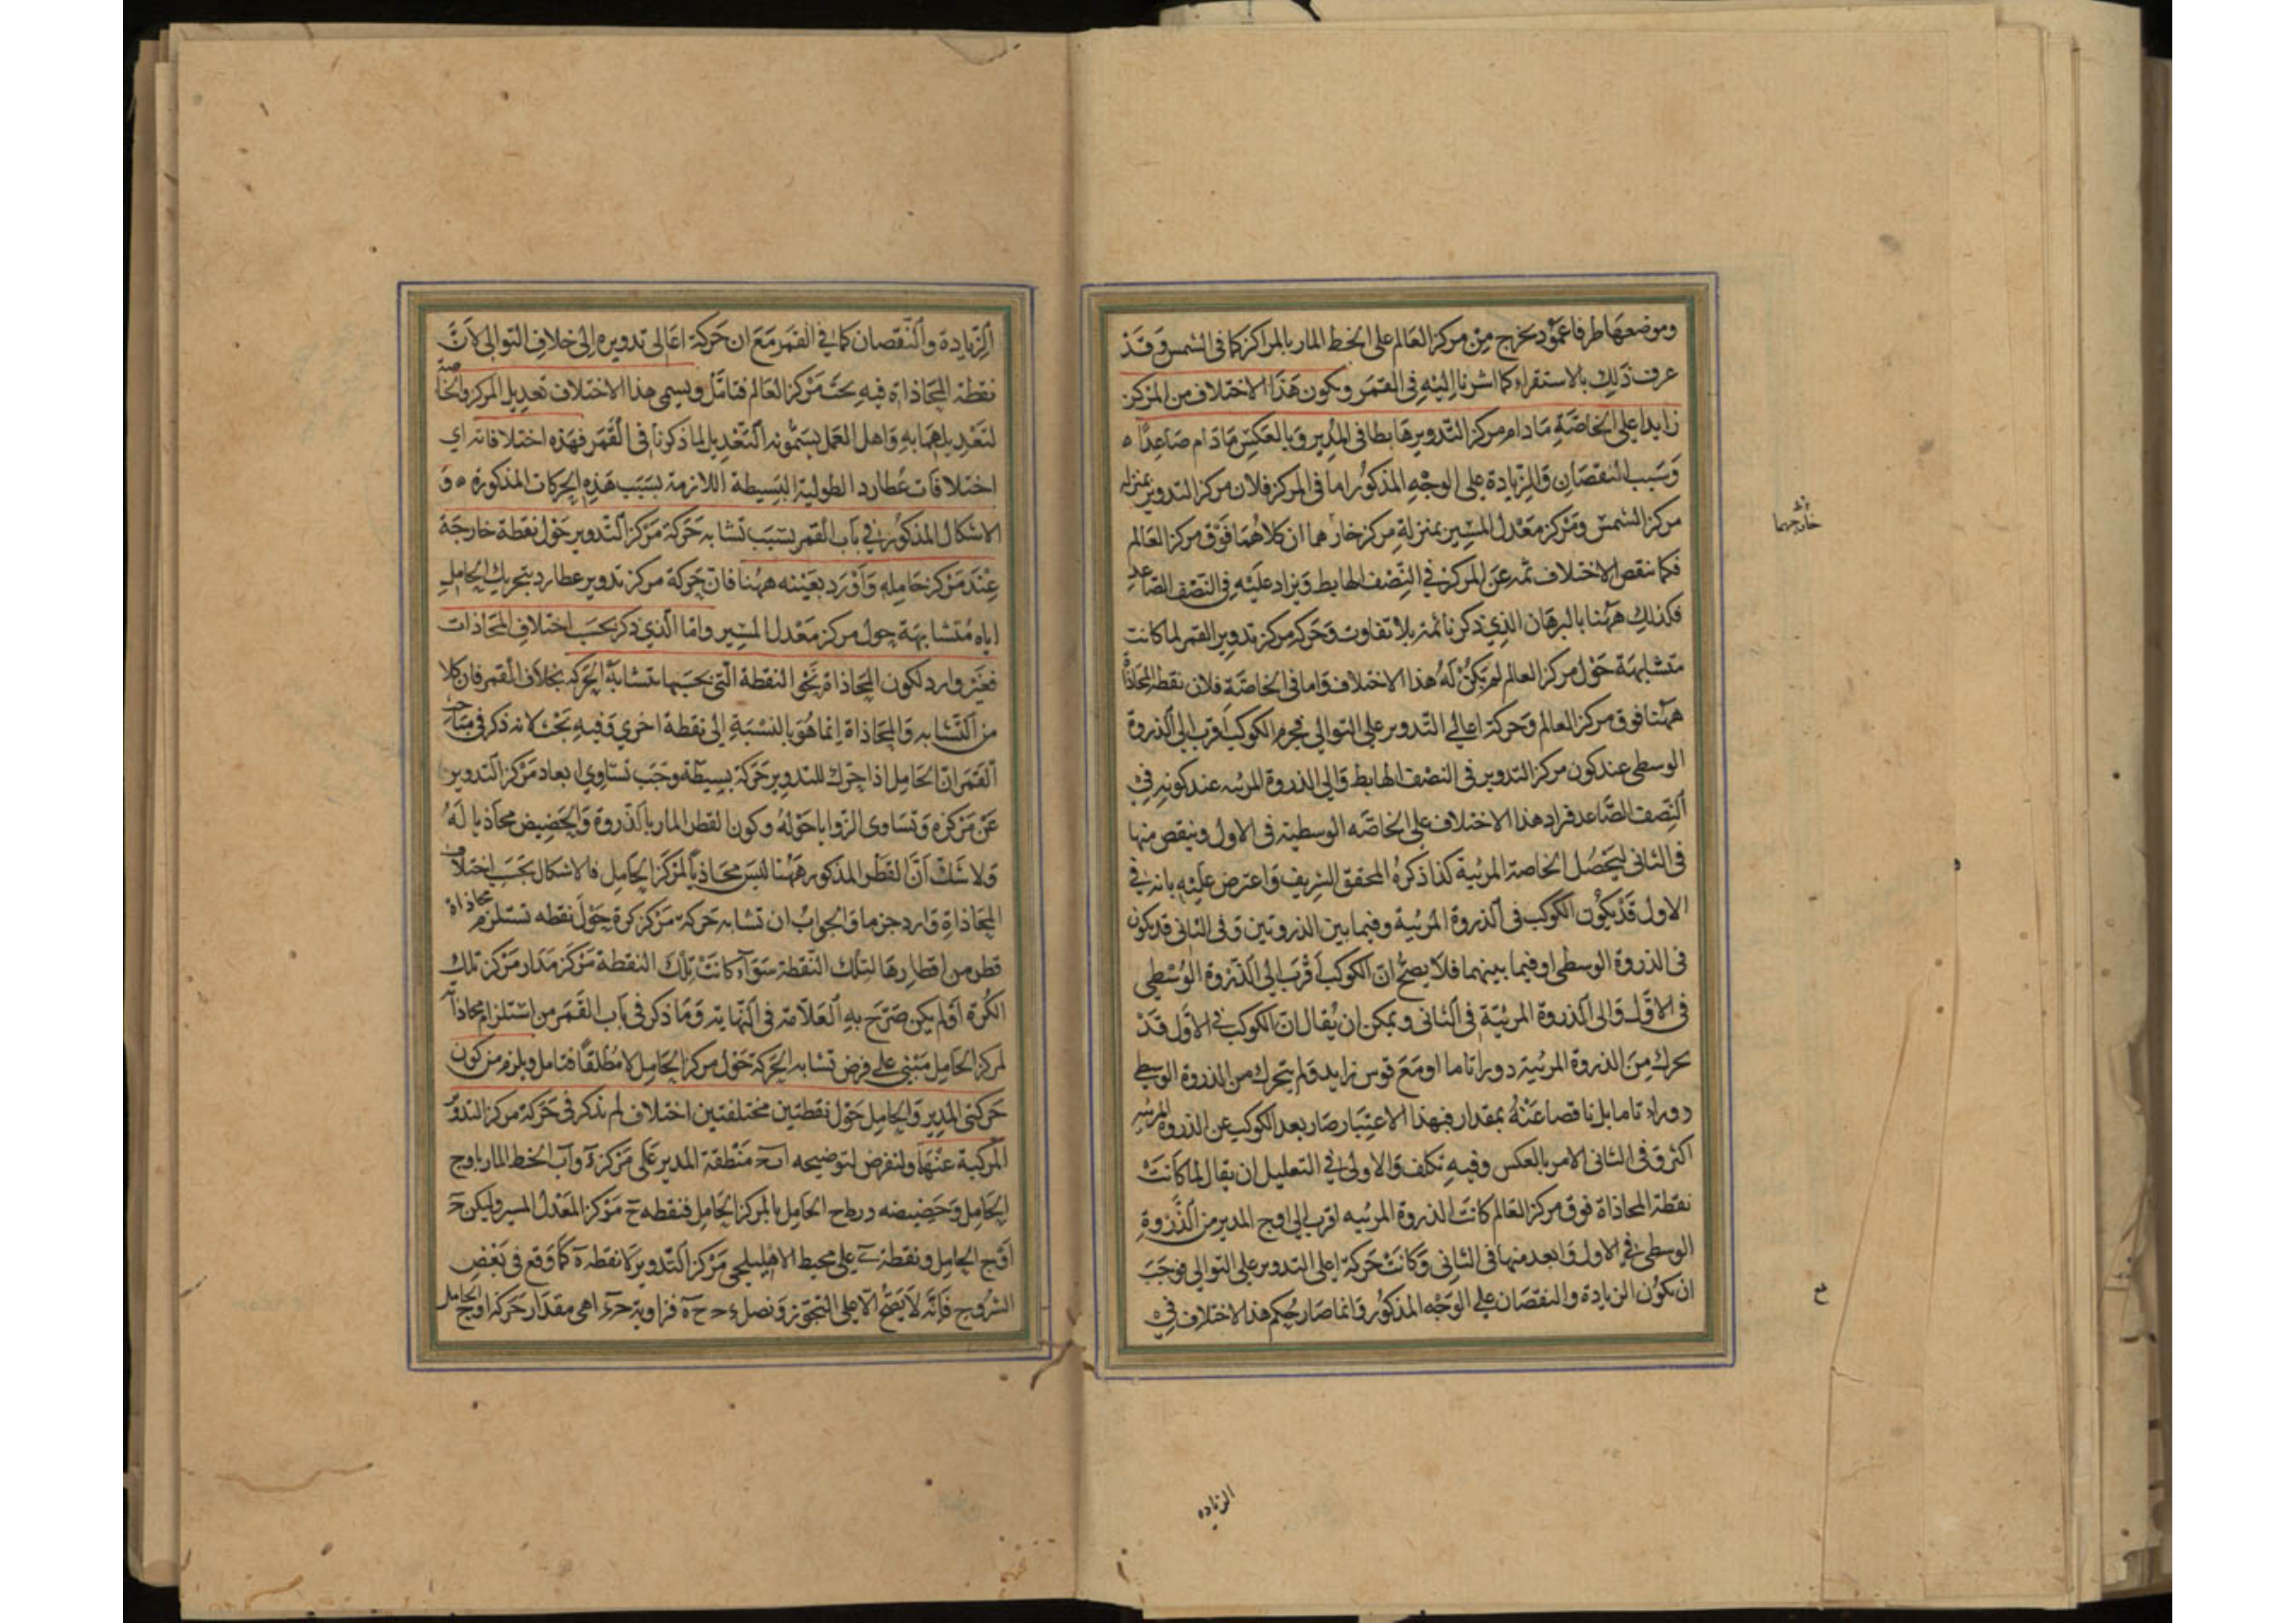 وموضعها طرفا عمود يخرج من مركز العالم على الخط المار بالمراكز كما في الشمس وقد
عرف ذلك بالاستقراء كما اشرنا اليه في القمر ويكون هذا الاختلاف من المركز
زايدا على الخاصة ما دام مركز التدوير هابطا في المدير وبالعكس ما دام صاعدا ه
وسبب النقصان والزيادة على الوجه المذكور اما في المركز فلان مركز التدوير بمنزلة
مركز الشمس ومركز معدل المسير بمنزلة مركز خارجها ان كلاهما فوق مركز العالم
فكما ينقص الاختلاف ثمه عن المركز في النصف الهابط ويزاد عليه في النصف الصاعد
فكذلك ههنا بالبرهان الذي ذكرنا ثمة بلا تفاوت وحركة مركز تدوير القمر لما كانت
متشابهة حول مركز العالم لم يكن له هذا الاختلاف واما في الخاصة فلان نقطة المحاذاة
ههنا فوق مركز العالم وحركة اعالي التدوير على التوالي فجرم الكوكب اقرب الى الذروة
الوسطى عند كون مركز التدوير في النصف الهابط والى الذروة المرئيه عند كونه في
النصف الصاعد فزاد هذا الاختلاف على الخاصه الوسطية في الاول وينقص منها
في الثاني ليحصل الخاصة المرئية كذا ذكره المحقق الشريف واعترض عليه بانه في
الاول قد يكون الكوكب في الذروة المرئية وفيما بين الذروتين وفي الثاني قد يكون
في الذروة الوسطى او فيما بينهما فلا يصح ان الكوكب اقرب الى الذروة الوسطى
في الاول والى الذروة المرئية في الثاني ويمكن ان يقال ان الكوكب في الاول قد
تحرك من الذروة المرئية دورا تاما او مع قوس زايد ولم يتحرك من الذروة الوسطى
دورا تاما بل ناقصا عنه بمقدار فبهذا الاعتبار صار بعد الكوكب عن الذروة المرئيه
اكثر وفي الثاني الامر بالعكس وفيه تكلف والاولى في التعليل ان يقال لما كانت
نقطة المحاذاة فوق مركز العالم كانت الذروة المرئيه اقرب الى اوج المدير من الذروة
الوسطى في الاول وابعد منها في الثاني وكانت حركة اعلى التدوير على التوالي فوجب
ان تكون الزيادة والنقصان على الوجه المذكور وانما صار حكم هذا الاختلاف في
خارجهما
الزياده
الزيادة والنقصان كما في القمر مع ان حركة اعالي تدويره الى خلاف التوالي لان
نقطة المحاذاة فيه تحت مركز العالم فتامل ويسمى هذا الاختلاف تعديل المركز والخاصة
لتعديلهما به واهل العمل يسمونه التعديل لما ذكرنا في القمر فهذه اختلافاته اي
اختلافات عطارد الطولية البسيطة اللازمة بسبب هذه الحركات المذكورة ه و
الاشكال المذكور في باب القمر بسبب تشابه حركة مركز التدوير حول نقطة خارجة
عند مركز حامله وارد بعينه ههنا فان حركة مركز تدوير عطارد بتحريك الحامل
اياه متشابهة حول مركز معدل المسير واما الذي ذكر بحسب اختلاف المحاذات
فغير وارد لكون المحاذاة نحو النقطة التي بحسبها تشابه الحركة بخلاف القمر فان كلا
من التشابه والمحاذاة انما هو بالنسبة الى نقطة اخرى وفيه بحث لانه ذكر في مباحث
القمر ان الحامل اذا حرك التدوير حركة بسيطة وجب تساوي ابعاد مركز التدوير
عن مركزه وتساوى الزوايا حوله وكون القطر المار بالذروة والحضيض محاذيا له
ولا شك ان القطر المذكور ههنا ليس محاذيا لمركز الحامل فالاشكال بحسب اختلاف
المحاذاة وارد جزما والجواب ان تشابه حركة مركز كرة حول نقطه تستلزم محاذاة
قطر من اقطارها لتلك النقطة سواء كانت تلك النقطة مركز مدار مركز تلك
الكرة او لم يكن صرح به العلامة في النهاية وما ذكر في باب القمر من استلزام محاذاته
لمركز الحامل مبني على فرض تشابه الحركة حول مركز الحامل لا مطلقا فتامل ويلزم من كون
حركتي المدير والحامل حول نقطتين مختلفتين اختلاف لم نذكر في حركة مركز التدوير
المركبة عنها ولنفرض لتوضيحه منطقة المدير على مركز ه واب الخط المار باوج
الحامل وحضيضه الحامل بالمركز الحامل فنقطه ح مركز المعدل المسير وليكن ح
اوج الحامل ونقطة ى على محيط الاهليلجي مركز التدوير لا نقطة ه كما وقع في بعض
الشروح فانه لا يصح الا على التجوز ونصل فزاوية اهى مقدار حركة اوج الحامل